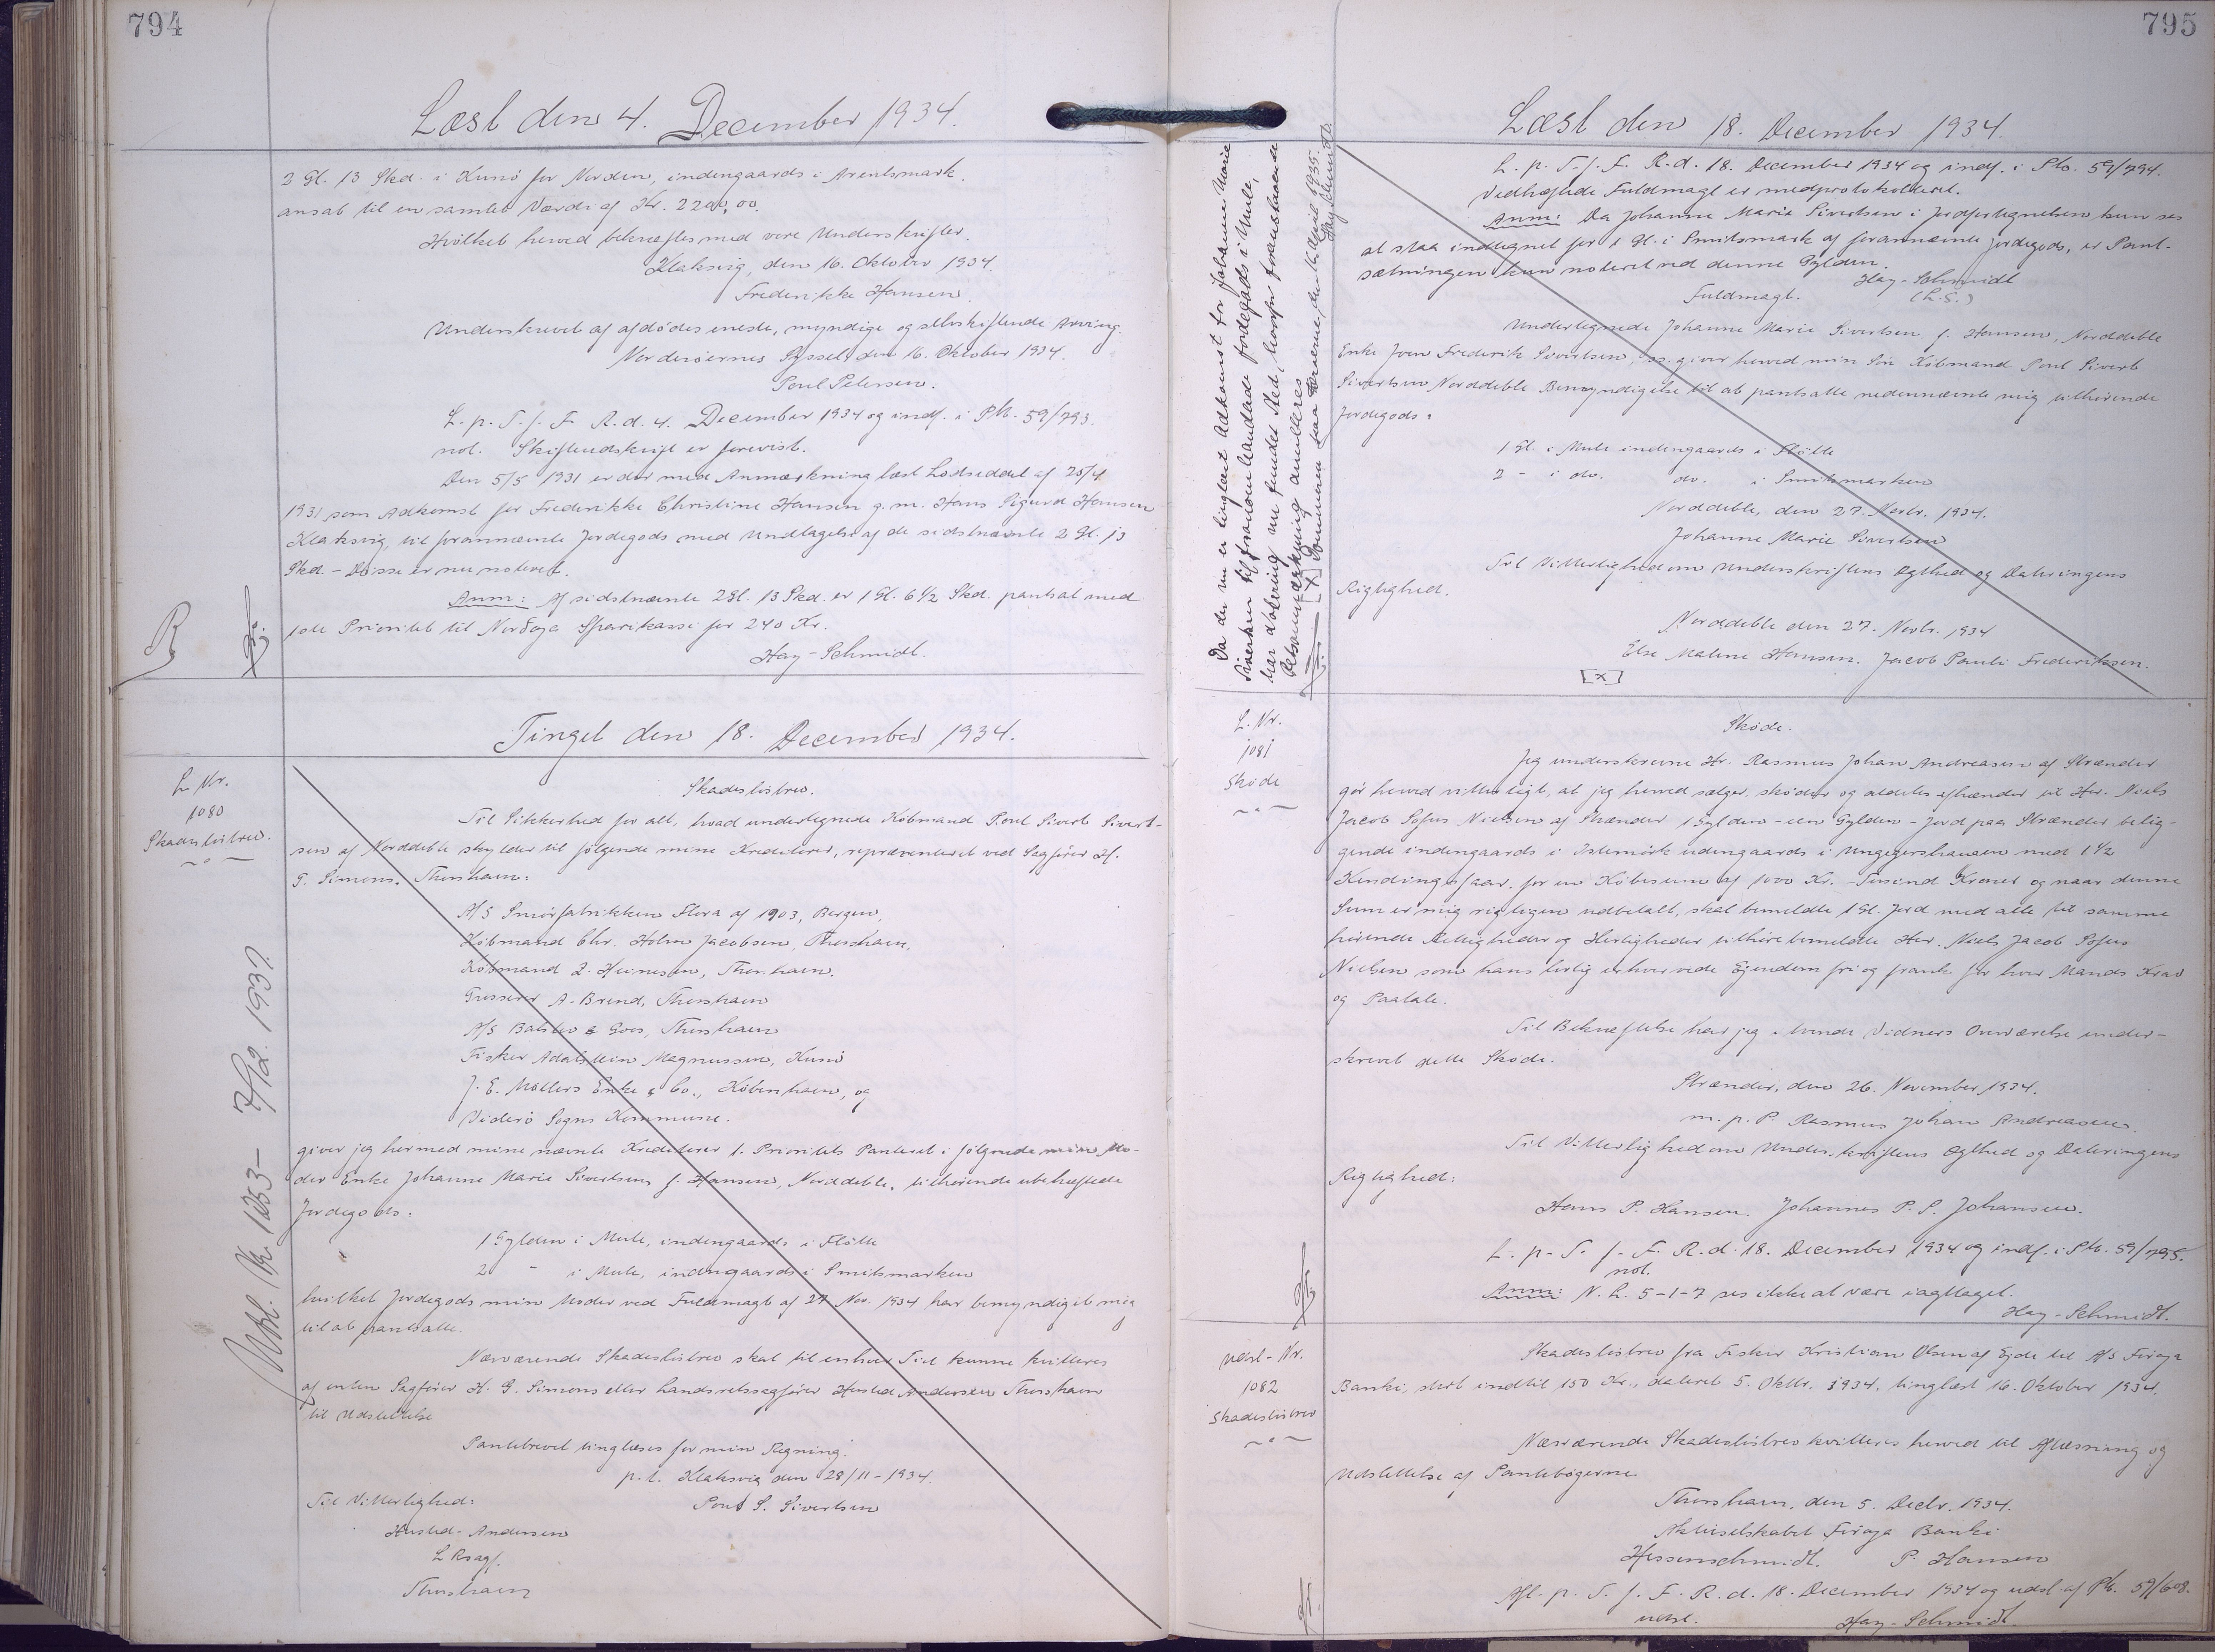 794
Læst den 4. December 1934.
2 Gl. 13 Skd. i Kunø for Norden, indengaards i Arentsmark.
ansat til en samlet Værdi af Kr. 2200,00.
Hvilket herved bekræftes med vore Underskrifter.
Klaksvig, den 16. Oktober 1934.
Frederikke Hansen.
Underskrevet af afdødes eneste, myndige og selvskiftende Arving.
Norderøernes Syssel, den 16. Oktober 1934.
Poul Petersen.
L. p. T. f. F. R. d. 4. December 1934 og indf. i Pb. 59/793.
not. Skifteudskrift er forevist.
Den 5/5 1931 er der med Anmærkning læst Lodseddel af 28/4
1931 som Adkomst for Frederikke Christine Hansen g. m. Hans Sigurd Hansen
Klaksvig, til forannævnte Jordegods med Undtagelse af de sidstnævnte 2 Gl. 13
Skd. - Disse er nu noteret.
Anm: Af sidstnævnte 2 Gl. 13 Skd. er 1 Gl. 6 1/2 Skd. pantsat med
1ste Prioritet til Norðoya Sparikassi for 240 Kr.
Hay-Schmidt.
R
Tinget den 18. December 1934.
L. Nr.
1080
Skadesløsbrev.
Skadesløsbrev.
Til Sikkerhed for alt, hvad undertegnede Købmand Poul Sivert Sivert-
sen af Norddeble skylder til følgende mine Kreditorer, repræsenteret ved Sagfører H.
G. Simons, Thorshavn:
A/S Smørfabrikken Flora af 1903, Bergen,
Købmand Chr. Holm Jacobsen, Thorshavn,
Købmand Z. Heinesen, Thorshavn.
Grosserer A. Brend, Thorshavn
A/S Balslev & Goes, Thorshavn
Fisker Adalstein Magnussen, Kunø
J. E. Møllers Enke & Co., København, og
Viderø Sogns Kommune.
giver jeg hermed mine nævnte Kreditorer 1. Prioritets Panteret i følgende min Mo-
der Enke Johanne Marie Sivertsens f. Hansen, Norddeble, tilhørende ubehæftede
Jordegods:
1 Gylden i Mule, indengaards i Fløtte
2 " i Mule, indengaards i Smitsmarken
hvilket Jordegods min Moder ved Fuldmagt af 27 Nov. 1934 har bemyndiget mig
til at pantsætte.
Nærværende Skadesløsbrev skal til enhver Tid kunne kvitteres
af enten Sagfører H. G. Simons eller Landsretssagfører Husted Andersen Thorshavn
til Udslettelse
Pantebrevet tinglæses for min Regning.
p. t. Klaksvig den 28/11 - 1934.
Til Vitterlighed: Poul S. Sivertsen
Husted-Andersen
L Rsagf.
Thorshavn
Udsl. Nr. 1253 - 7/12. 1937.
795
Læst den 18. December 1934.
L. p. T. f. F. R. d. 18. December 1934 og indf. i Pb. 59/794.
Vedhæftede Fuldmagt er medprotokolleret.
Anm: Da Johanne Marie Sivertsen i Jordfortegnelsen kun ses
at staa indtegnet for 1 Gl. i Smitsmark af forannævnte Jordegods, er Pant-
sætningen kun noteret ved denne Gylden.
Hay-Schmidt
(L.S.)
Fuldmagt.
Undertegnede Johanne Marie Sivertsen f. Hansen, Norddeble
Enke Joen Frederik Sivertsen, giver herved min Søn Købmand Poul Sivert
Sivertsen Norddeble Bemyndigelse til at pantsætte nedennævnte mig tilhørende
Jordegods:
1 Gl. i Mule indengaards i Fløtte
2 - i do. do. i Smitsmarken
Norddeble, den 27. Novbr. 1934.
Johanne Marie Sivertsen
Til Vitterlighed om Underskriftens Ægthed og Dateringens
Rigtighed.
Norddeble den 27. Novbr. 1934
Else Malene Hansen. Jacob Pauli Frederiksen.
[x]
Da der nu er tinglæst Adkomst for Johanne Marie
Sivertsen til foranomhandlede Jordegods i Mule,
har Notering nu fundet Sted, hvorfor foranstaaende
Retsanmærkning annulleres
[x] Dommeren paa Færøerne, den 16. April 1935.
Hay-Schmidt.
L. Nr.
1081
Skøde
Skøde.
Jeg underskrevne Hr. Rasmus Johan Andreasen af Strænder
gør herved vitterligt, at jeg herved sælger, skøder og aldeles afhænder til Hr. Niels
Jacob Sofus Nielsen af Strænder 1 Gylden - een Gylden - Jord paa Strænder belig-
gende indengaards i Istemörk udengaards i Ungegershaugen med 1 1/2
Kendingsfaar, for en Købesum af 1000 Kr. - Tusind Kroner og naar denne
Sum er mig rigtigen udbetalt, skal bemeldte 1 Gl. Jord med alle til samme
hørende Rettigheder og Herligheder tilhøre bemeldte Hr. Niels Jacob Sofus
Nielsen som hans lovlig erhvervede Ejendom fri og frank for hver Mands Krav
og Paatale.
Til Bekræftelse har jeg i tvende Vidners Overværelse under-
skrevet dette Skøde.
Strænder, den 26. November 1934.
m. p. P. Rasmus Johan Andreasen.
Til Vitterlighed om Underskriftens Ægthed og Dateringens
Rigtighed:
Hans P. Hansen. Johannes P. S. Johansen.
L. p. T. f. F. R. d. 18. December 1934 og indf. i Pb. 59/795.
not.
Anm: N. L. 5-1-7 ses ikke at være iagttaget.
Hay-Schmidt.
Udsl-Nr.
1082
Skadesløsbrev
Skadesløsbrev fra Fisker Kristian Olsen af Ejde til A/S Føroya
Banki, stort indtil 150 Kr., dateret 5. Oktbr. 1934, tinglæst 16. Oktober 1934.
Nærværende Skadesløsbrev kvitteres herved til Aflæsning og
Udslettelse af Pantebøgerne
Thorshavn, den 5. Decbr. 1934.
Aktieselskabet Føroya Banki
Hessenschmidt. P. Hansen
Afl. p. T. f. F. R. d. 18. December 1934 og udsl. af Pb. 59/608.
udsl. Hay-Schmidt